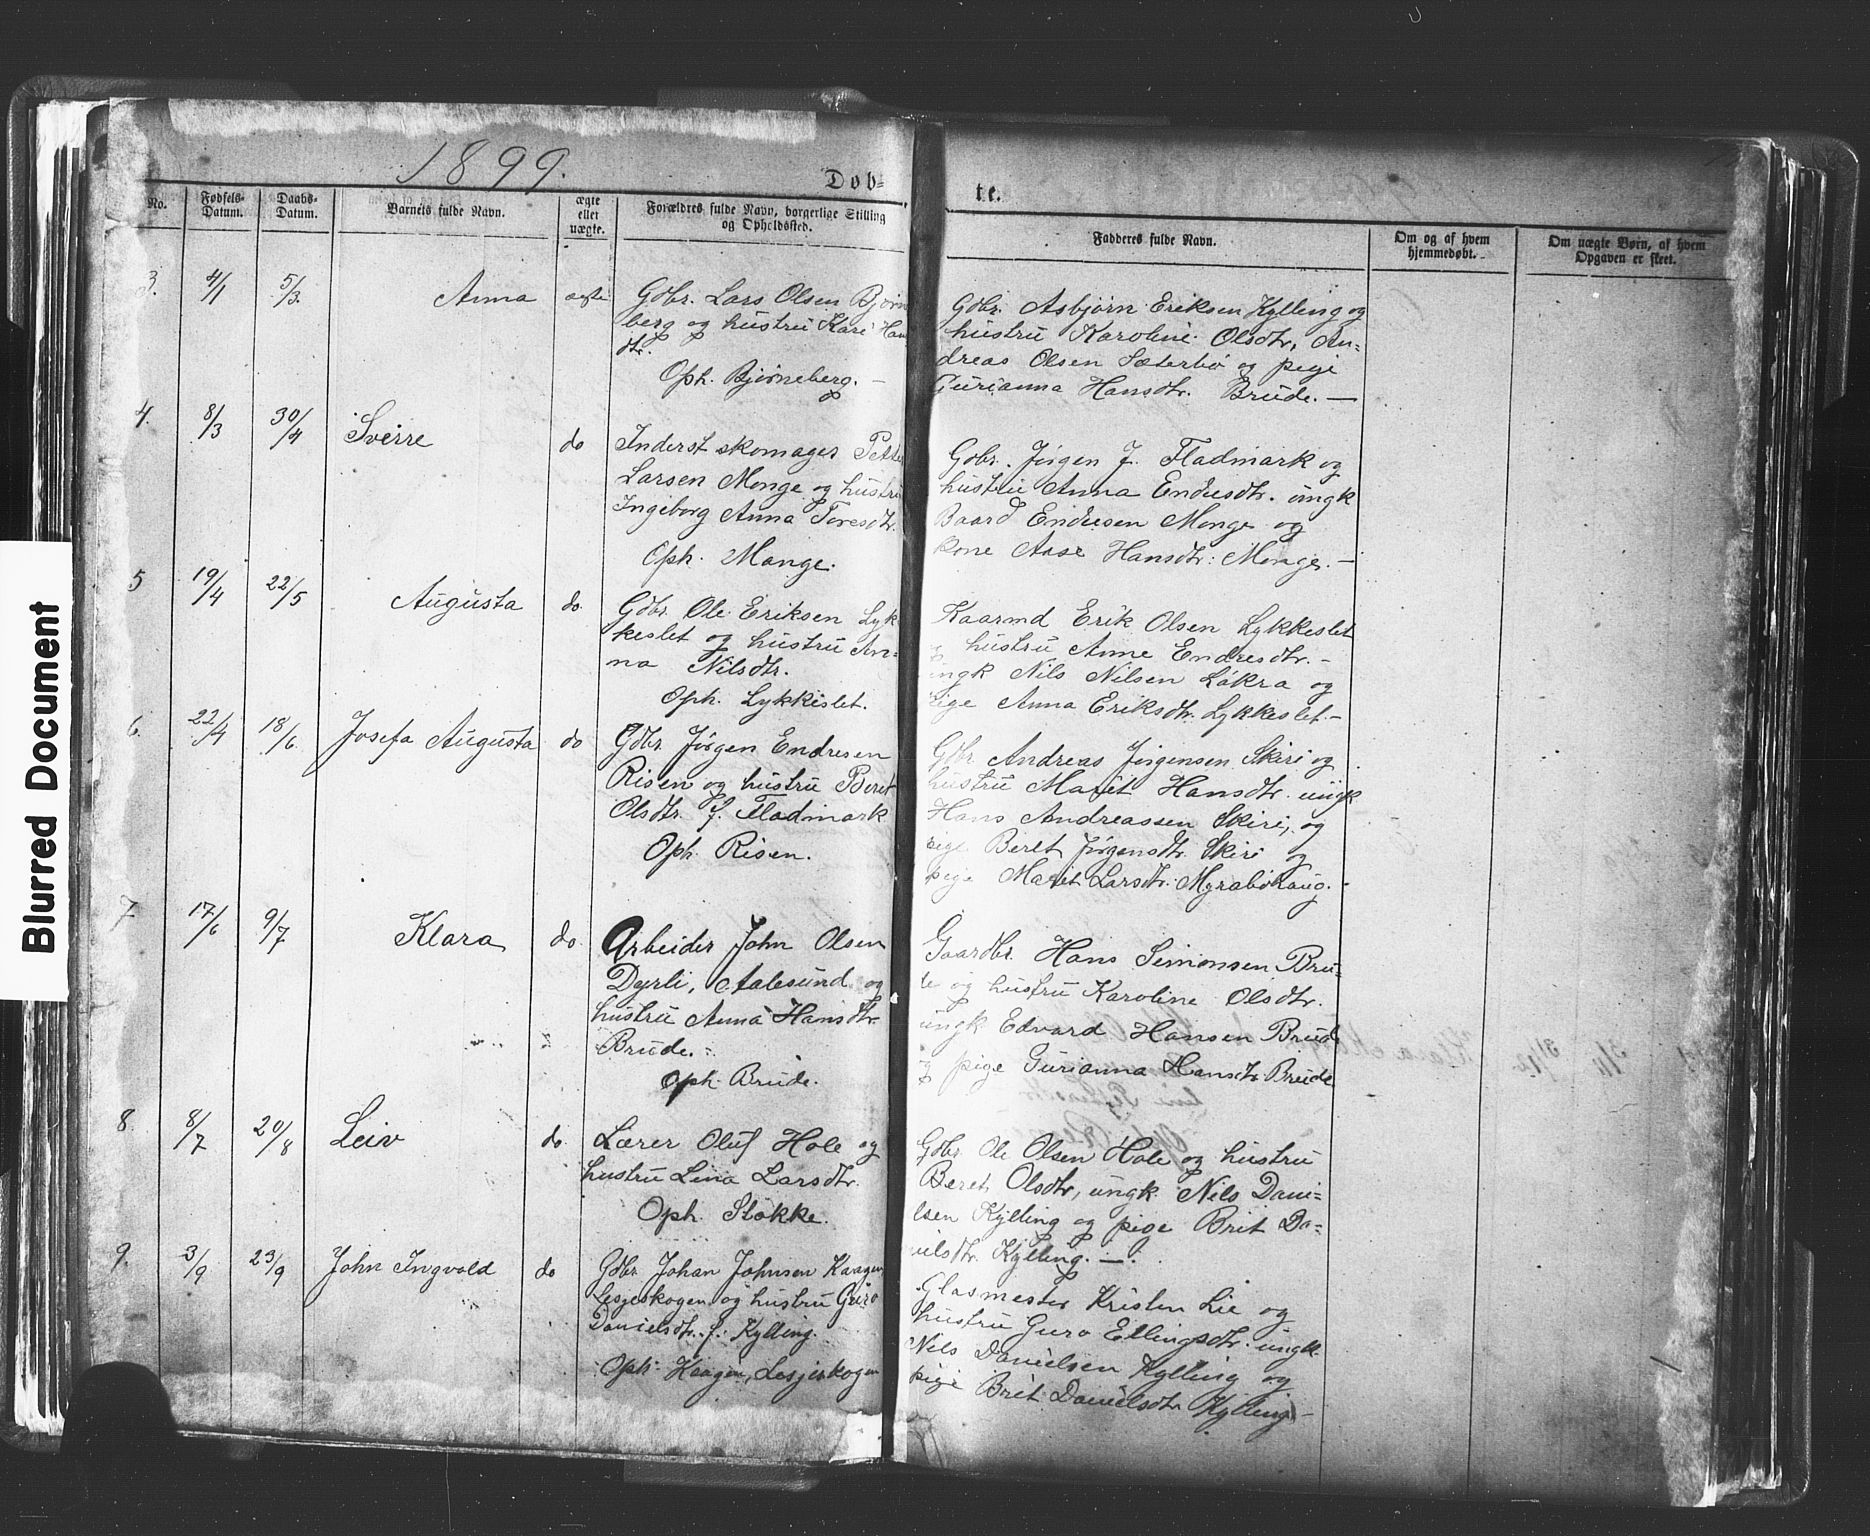 Blurred Document
1899.
Døb=
te.
No.
Fødsels-
Datum.
Daabs-
Datum.
Barnets fulde Navn.
ægte
eller
uægte.
Forældres fulde Navn, borgerlige Stilling
og Opholdssted.
Fadderes fulde Navn.
Om og af hvem
hjemmedøbt.
Om uægte Børn, af hvem
Opgaven er skeet.
3. 4/1 5/3. Anna ægte
Gdbr. Lars Olsen Bjørne
berg og hustru Kari Han
dtr.
Oph. Bjørneberg. —
Gdbr. Asbjørn Eriksen Kylling og
hustru Karoline Olsdtr, An=
dreas Olsen Sæterbø og pige
Gurianna Hansdtr. Brude. —
4. 8/3 30/4 Sverre do
Inderst skomager Petter
Larsen Monge og hustru
Ingeborg Anna Toresdtr.
Oph. Monge.
Gdbr. Jørgen J. Fladmark og
hustru Anna Endresdtr. ungk
Baard Endresen Monge og
kone Aase Hansdtr. Monge. —
5 19/4 22/5 Augusta do
Gdbr. Ole Eriksen Lyk
keslet og hustru An=
na Nilsdtr.
Oph. Lykkeslet.
Kaarmd Erik Olsen Lykkeslet
hustru Anne Endresdtr. -
ungk Nils Nilsen Løkra og
pige Anna Eriksdtr. Lykkeslet. -
6. 22/4 18/6 Josefa Augusta do
Gdbr Jørgen Endresen
Risen og hustru Beret
Olsdtr. f. Fladmark
Oph. Risen.
Gdbr Andreas Jørgensen Skiri og
hustru Marit Hansdtr. ungk
Hans Andreassen Skiri, og
pige Beret Jørgensdtr. Skiri og
pige Marit Larsdtr. Myrabøhaug. -
7. 17/6 9/7 Klara do
Arbeider John Olsen
Dyrli, Aalesund og
hustru Anna Hansdtr.
Brude. -
Oph. Brude.
Gaardbr. Hans Simonsen Bru=
de og hustru Karoline Olsdtr.
ungk Edvard Hansen Brude
og pige Gurianna Hansdtr Brude
8. 8/7 20/8 Leiv do
Lærer Oluf Hole og
hustru Lina Larsdtr.
Oph. Stokke.
Gdbr. Ole Olsen Hole og hustru
Beret Olsdtr, ungk. Nils Dani=
elsen Kylling og pige Brit Da=
nielsdtr. Kylling. —
9. 3/9 23/9 John Ingvald do
Gdbr Johan Johnsen Kaagen,
Lesjeskogen og hustru Guro
Danielsdtr. f. Kylling.
Oph. Kaagen, Lesjeskogen
Glasmester Kristen Lie og
hustru Guro Ellingsdtr. ungk.
Nils Danielsen Kylling og
pige Brit Danielsdtr Kylling -